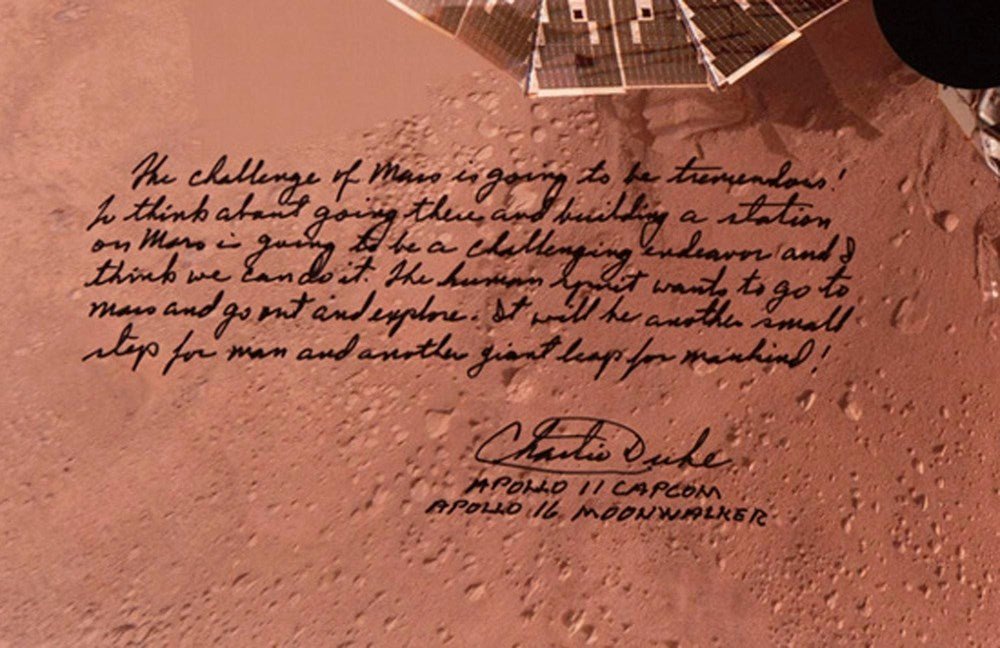 The challenge of Mars is going to be tremendous!
To think about going there and building a station
on Mars is going to be a challenging endeavor and I
think we can do it. The human spirit wants to go to
Mars and go out and explore. It will be another small
step for man and another giant leap for mankind!
Charlie Duke
APOLLO 11 CAPCOM
APOLLO 16 MOONWALKER